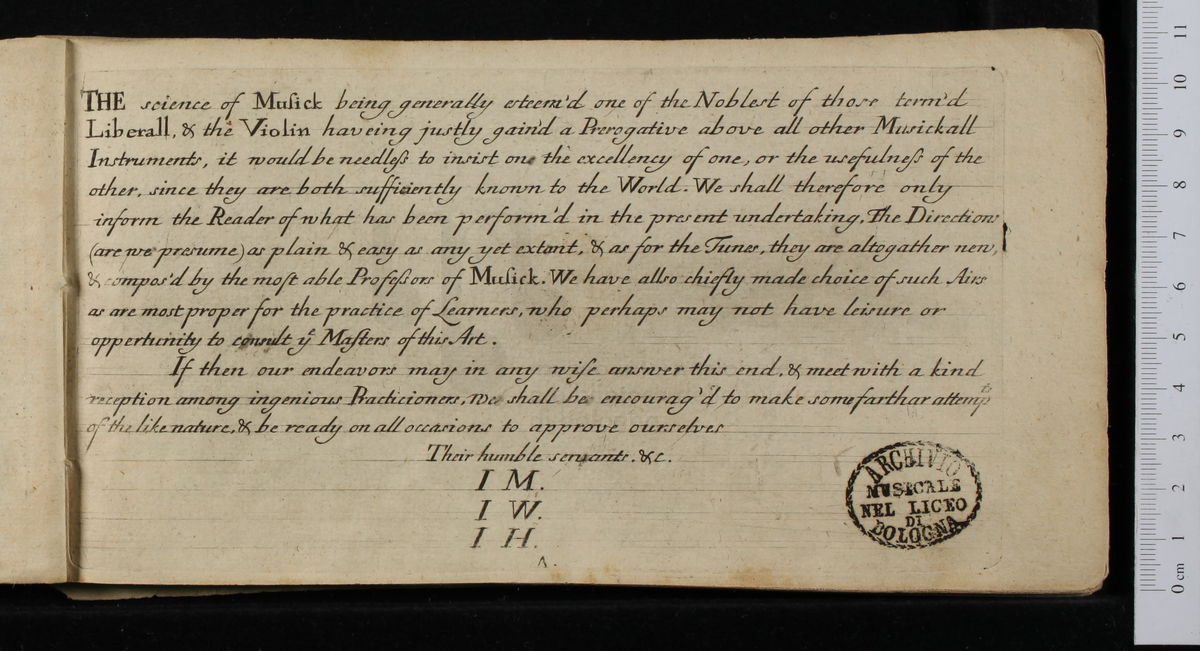 THE science of Muſick being generally esteem'd one of the Noblest of those term'd
Liberall, & the Violin haveing justly gain'd a Prerogative above all other Musickall
Instruments, it would be needleſs to insist on the excellency of one, or the usefulneſs of the
other, since they are both sufficiently known to the World. We shall therefore only
inform the Reader of what has been perform'd in the present undertaking, The Directions
(are we presume) as plain & easy as any yet extant, & as for the Tunes, they are altogather new,
& compos'd by the moſt able Profeſsors of Muſick. We have allso chiefly made choice of such Airs
as are most proper for the practice of Learners, who perhaps may not have leisure or
oppertunity to consult yᵉ Maſters of this Art.
If then our endeavors may in any wiſe answer this end, & meet with a kind
reception among ingenious Practicioners, we shall be encourag'd to make some farthar attempᵗˢ
of the like nature, & be ready on all occasions to approve ourselves
Their humble servants. &c.
I M.
I W.
I H.
A.
ARCHIVIO
MUSICALE
NEL LICEO
DI
BOLOGNA
11
10
9
8
7
6
5
4
3
2
1
0 cm